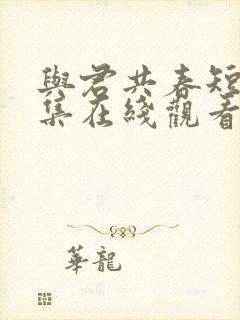 與君共春短
集在綫觀看
華龍